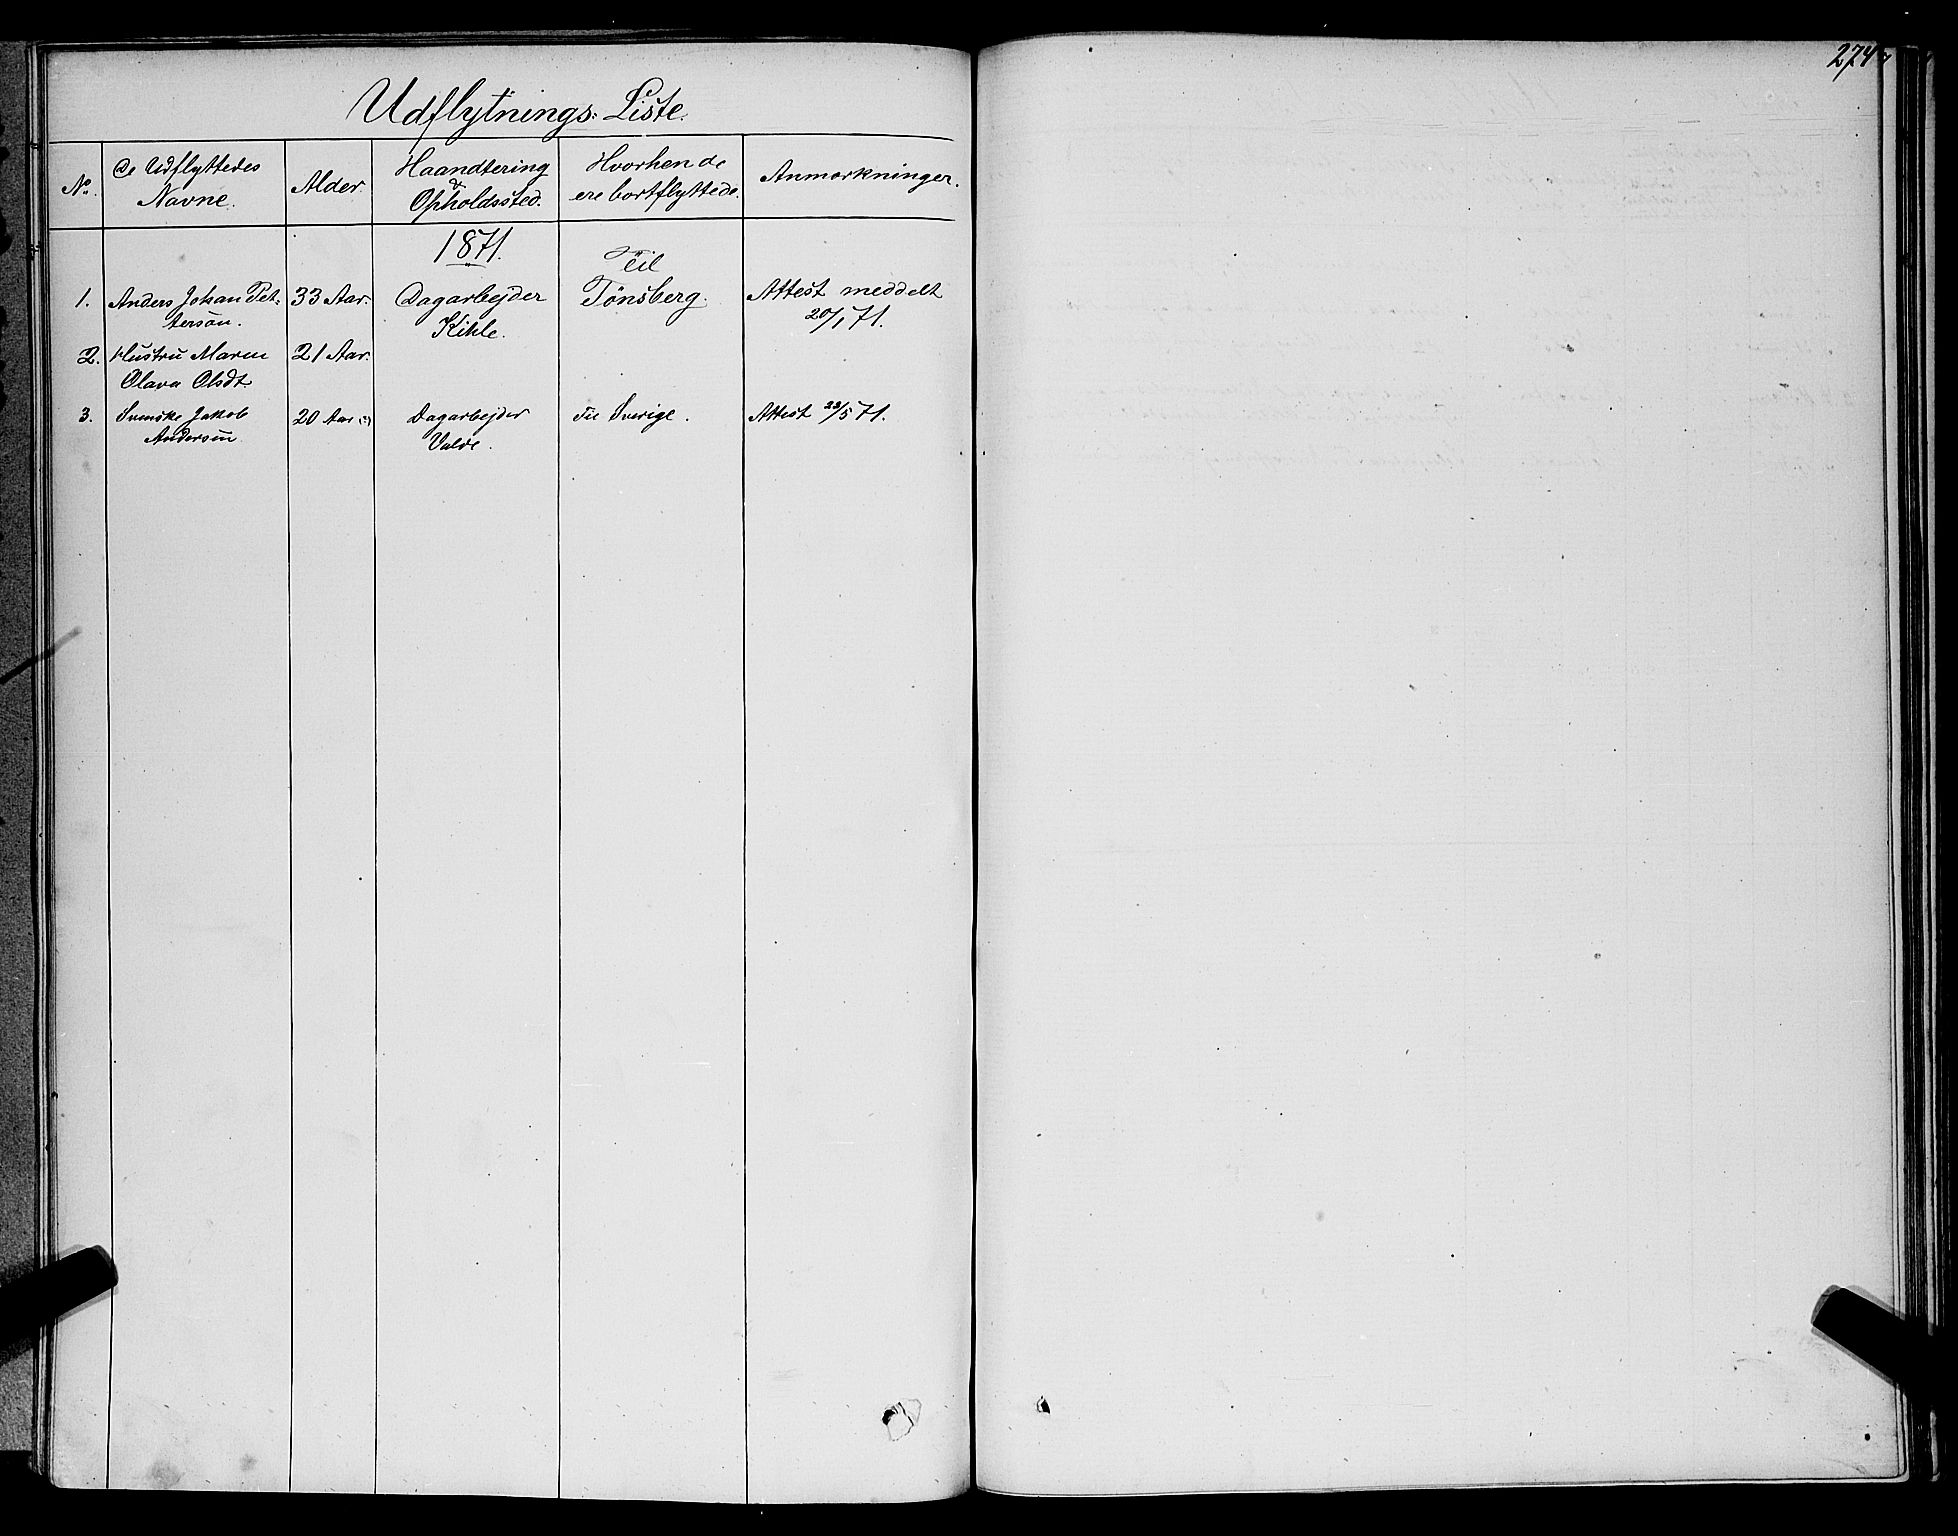 274
Udflytnings: Liste.
No.
De Udflyttedes
Navne.
Alder.
Haandtering
&
Opholdssted.
Hvorhen de
ere bortflyttede.
Anmærkninger.
1871.
Til
1. Anders Johan Pet- 33 Aar. Dagarbejder Tönsberg. Attest meddelt
tersön. Kihle. 20/1 71.
2. Hustru Maren 21 Aar.
Olava Olsdt.
3. Svenske Jakob 20 Aar (?) Dagarbejder Til Sverige. Attest 23/5 71.
Andersen Valde.